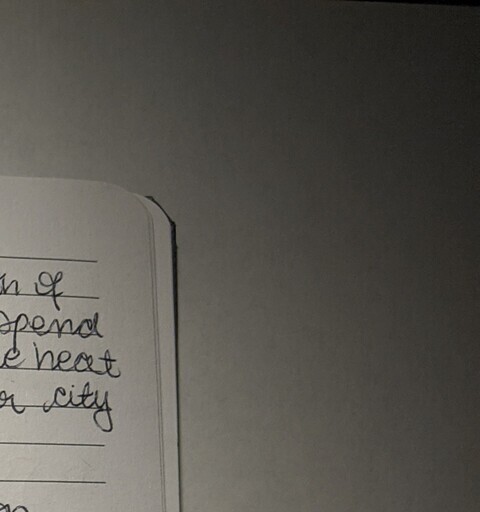 n of
spend
e heat
or city